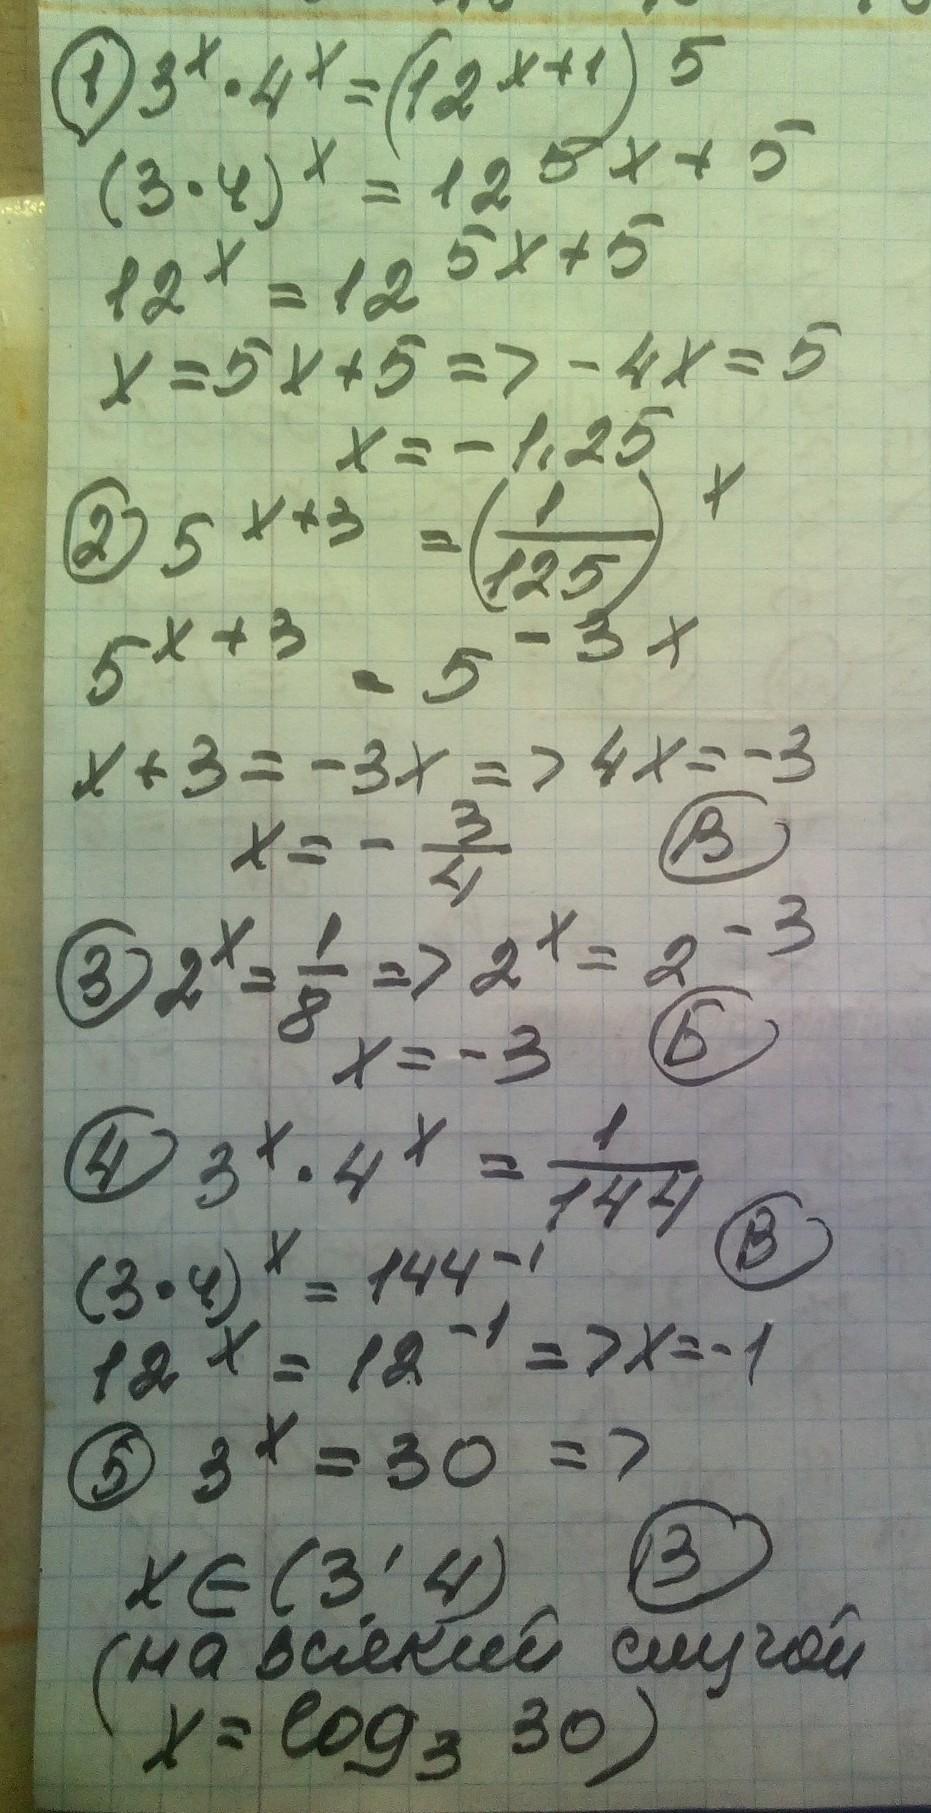 ① 3^x · 4^x = (12^(x+1))^5
(3·4)^x = 12^(5x+5)
12^x = 12^(5x+5)
x = 5x+5 => -4x = 5
x = -1,25
② 5^(x+3) = (1/125)^x
5^(x+3) = 5^(-3x)
x+3 = -3x => 4x = -3
x = -3/4 Ⓑ
③ 2^x = 1/8 => 2^x = 2^(-3)
x = -3 Ⓑ
④ 3^x · 4^x = 1/144
(3·4)^x = 144^(-1) Ⓑ
12^x = 12^(-1) => x = -1
⑤ 3^x = 30 =>
x ∈ (3; 4) Ⓑ
(на всякий случай
x = log₃ 30)